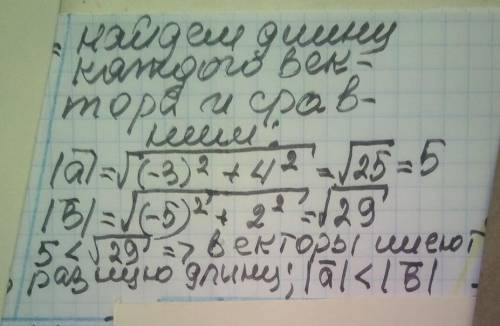 найдем длину
каждого век-
тора и срав-
ним:
|a̅|=√(-3)² + 4² = √25 = 5
|b̅|=√(-5)² + 2² = √29
5 < √29 => векторы имеют
разную длину; |a̅| < |b̅|